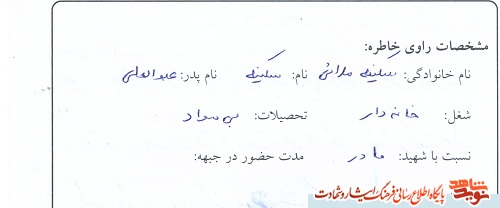 مشخصات راوی خاطره:
نام خانوادگی: سکینه مدائنی نام: سکینه نام پدر: عبدالعلی
شغل: خانه دار تحصیلات: بی سواد
نسبت با شهید: مادر مدت حضور در جبهه:
نوید شاهد
پایگاه اطلاع رسانی فرهنگ ایثار و شهادت